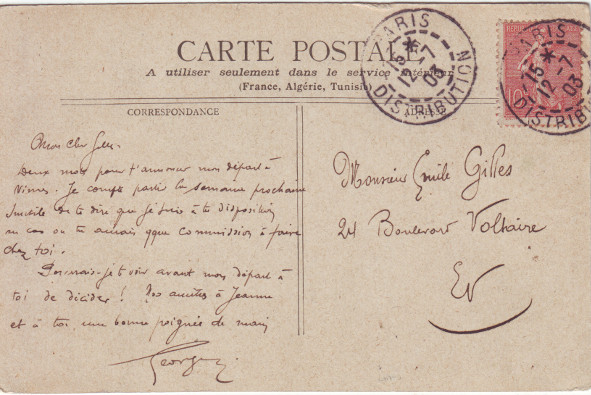 CARTE POSTALE
A utiliser seulement dans le service intérieur
(France, Algérie, Tunisie)
CORRESPONDANCE
PARIS
15 *
12 -7
03
DISTRIBUTION
PARIS
15 *
12 -7
03
DISTRIBUTION
10
Mon cher Gilles.
Deux mots pour t'annoncer mon départ à
Nîmes. Je compte partir la semaine prochaine
Inutile de te dire que je suis à ta disposition
au cas où tu aurais qque commission à faire
chez toi.
Pourrais-je te voir avant mon départ à
toi de décider ! Des amitiés à Jeanne
et à toi une bonne poignée de main
Georges
Monsieur Emile Gilles
24 Boulevard Voltaire
EV